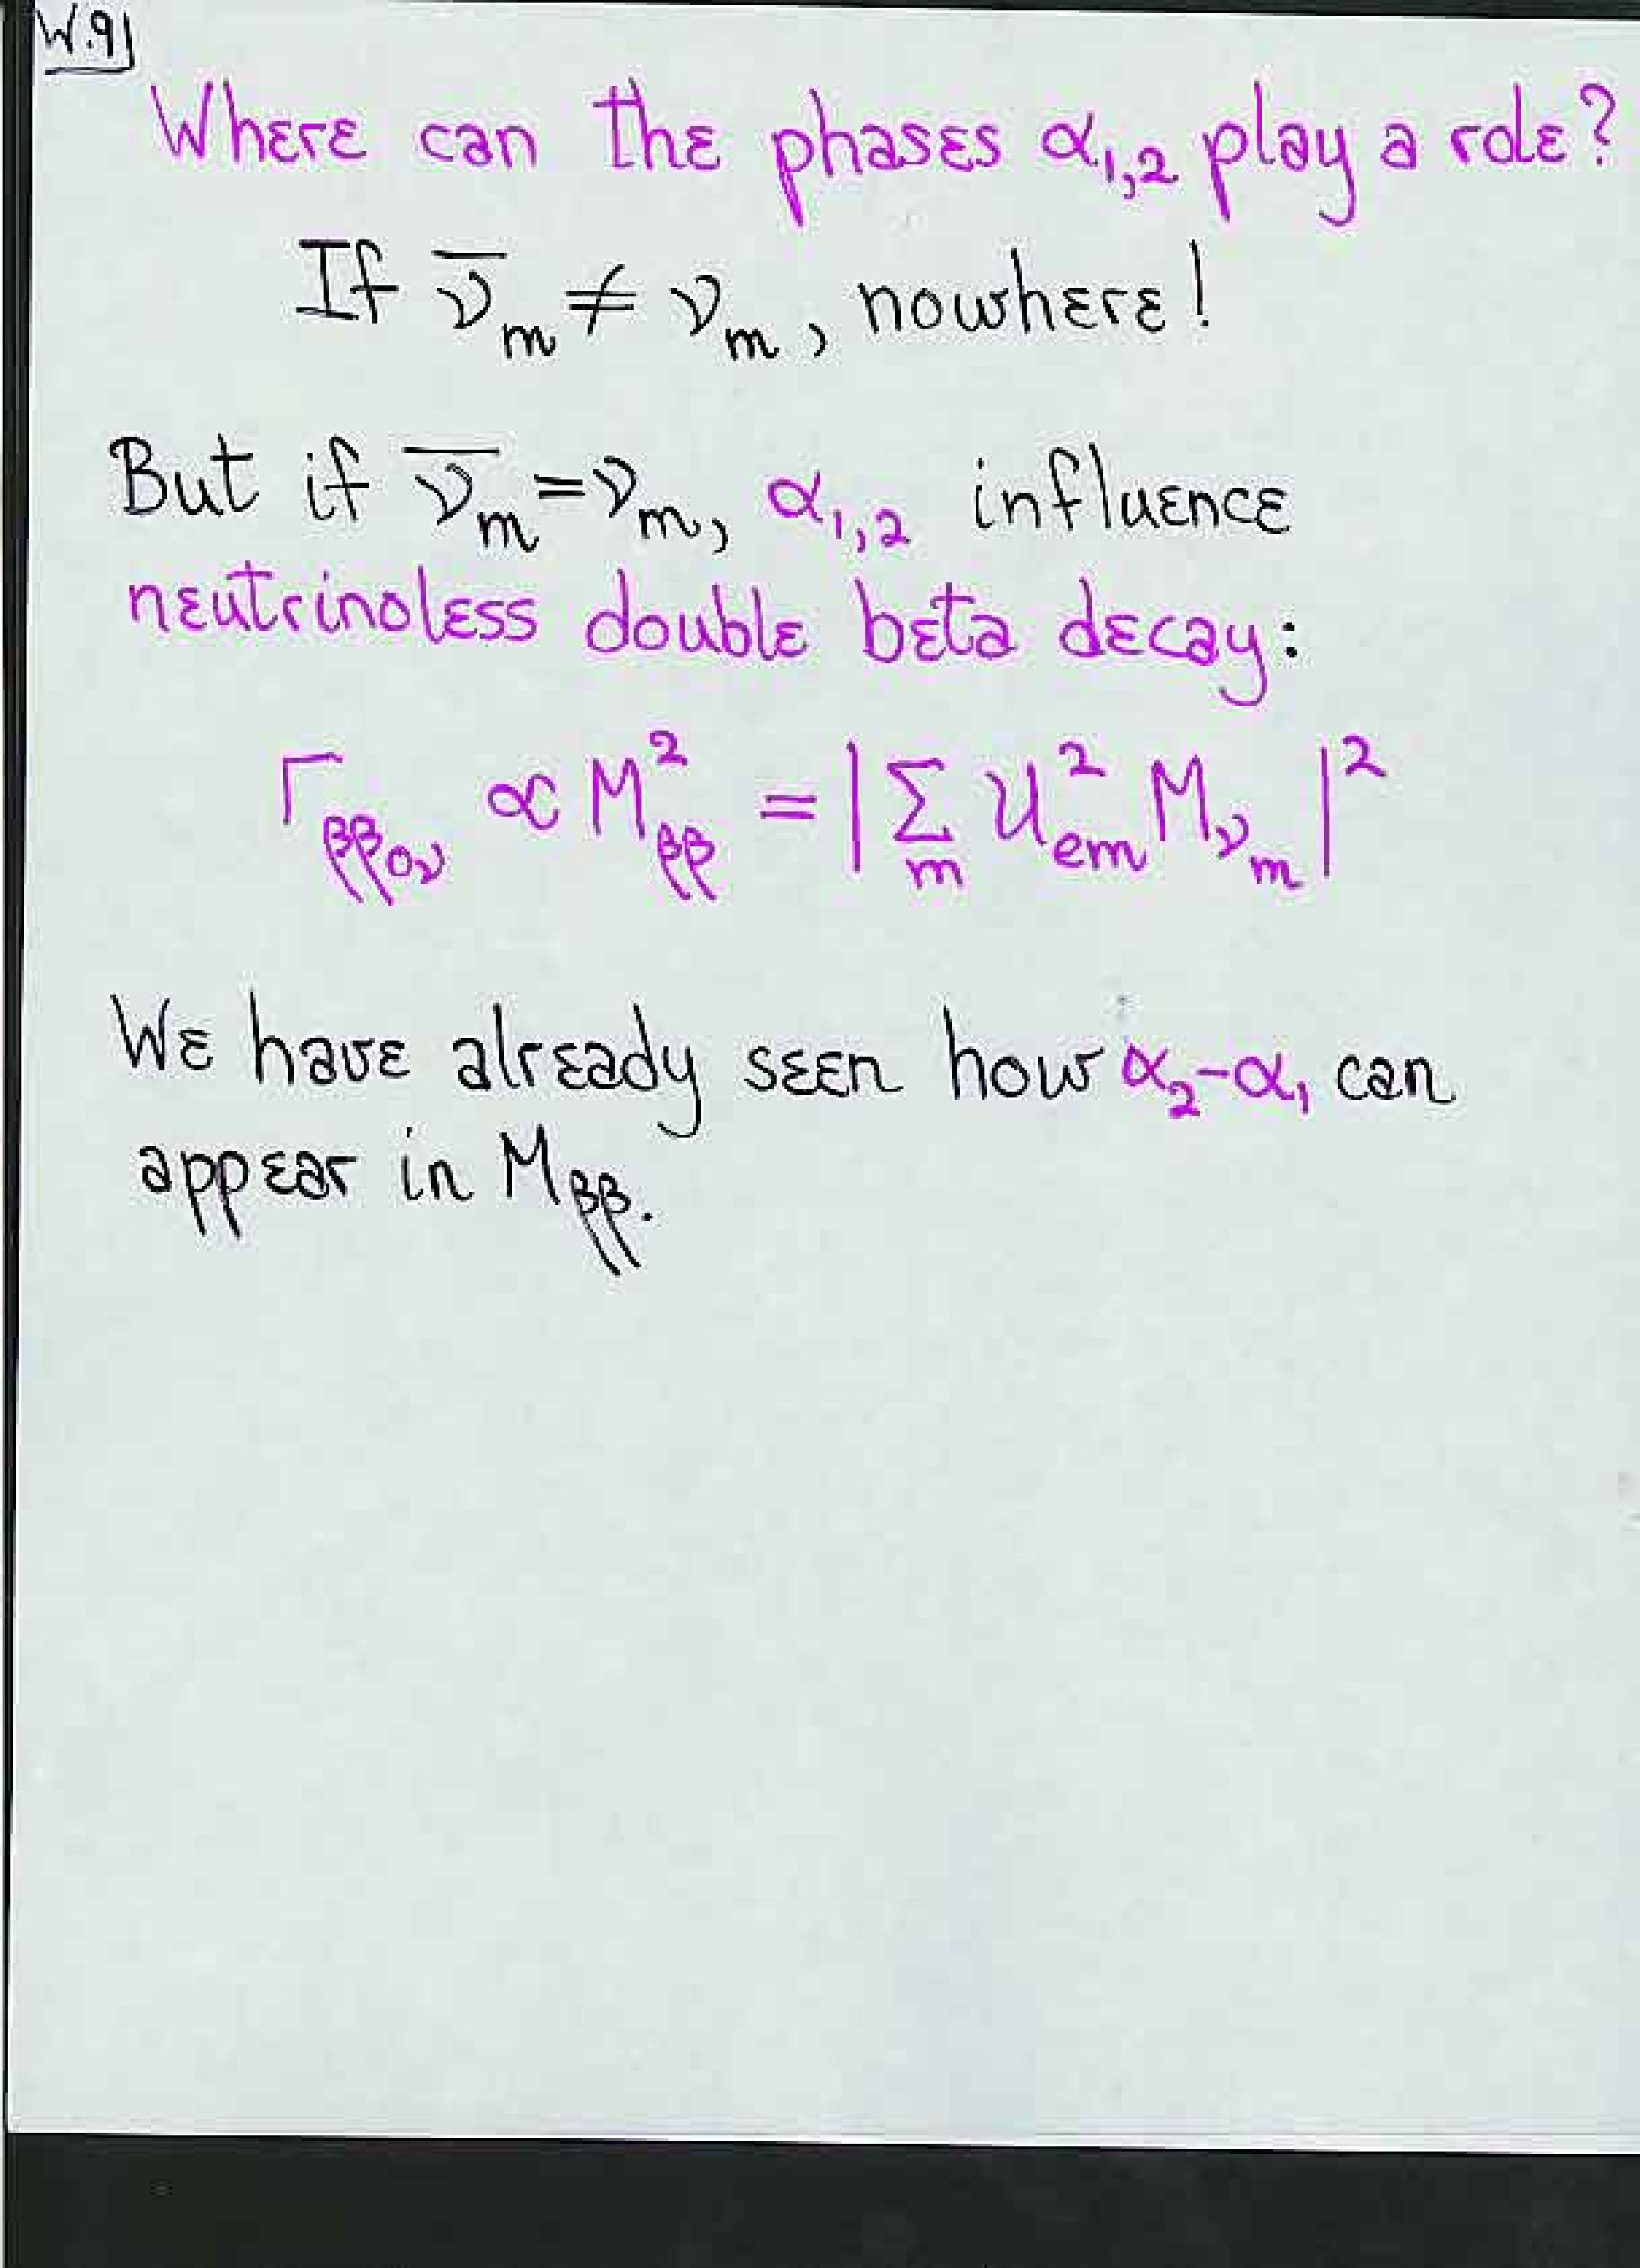 W.9
Where can the phases α₁,₂ play a role?
If ν̅ₘ ≠ νₘ, nowhere!
But if ν̅ₘ = νₘ, α₁,₂ influence
neutrinoless double beta decay:
Γ_ββ0ν ∝ M²_ββ = |∑_m U²_em M_ν_m|²
We have already seen how α₂-α₁ can
appear in M_ββ.